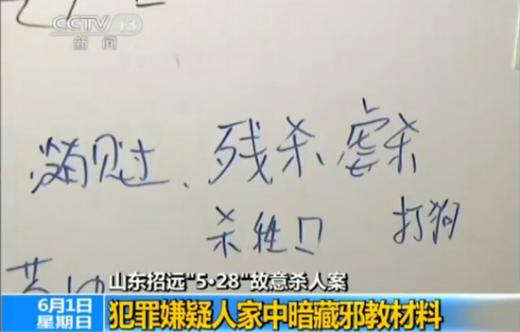 CCTV 13
新闻
没有见过、残杀 虐杀
杀牲口 打狗
山东招远"5·28"故意杀人案
6月1日
星期日
犯罪嫌疑人家中暗藏邪教材料